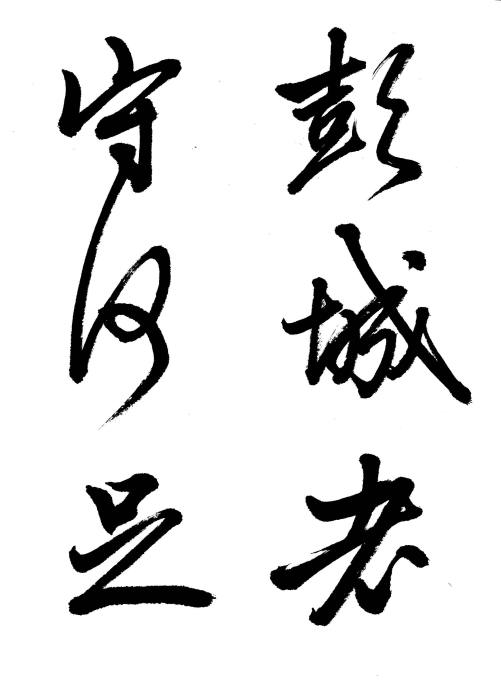 彭城老
守何足